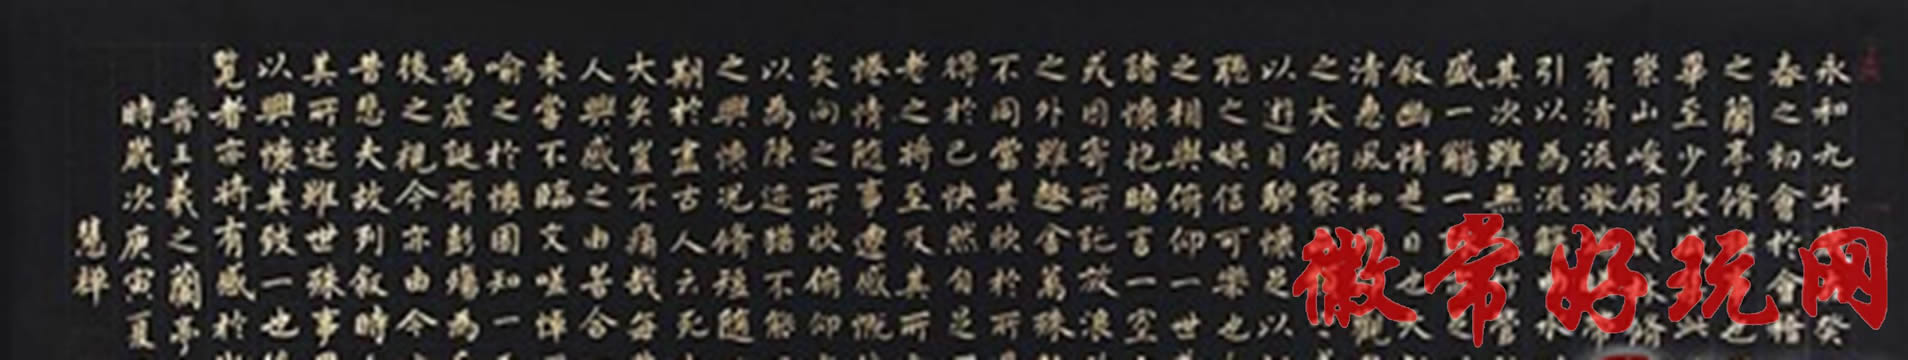 永和九年癸
春之初會於會稽
之蘭亭脩也
畢至少長與
崇山峻領茂林脩
有清流激帶
引以為流觴水
其次雖無竹管
盛一觴一之
敘幽情是日也天
清惠風和觀
之大俯察
以遊目騁懷足以
聽之娛信可樂也
之相與俯仰一世
諸懷抱晤言一室
或因寄所託放浪
之外雖趣舍萬殊
不同當其欣於所
得於己快然自足
老之將至及其所
惓情隨事遷感慨
矣向之所欣俯仰
以為陳迹猶不能
之興懷況脩短隨
期於盡古人云死
大矣豈不痛哉每
人興感之由若合
未嘗不臨文嗟悼
喻之於懷固知一
為虛誕齊彭殤為
後之視今亦由今
昔悲夫故列敘時
其所述雖世殊事
以興懷其致一也
覽者亦將有感於
晉王羲之蘭亭
時歲次庚寅夏
慧禅
徽常好玩网